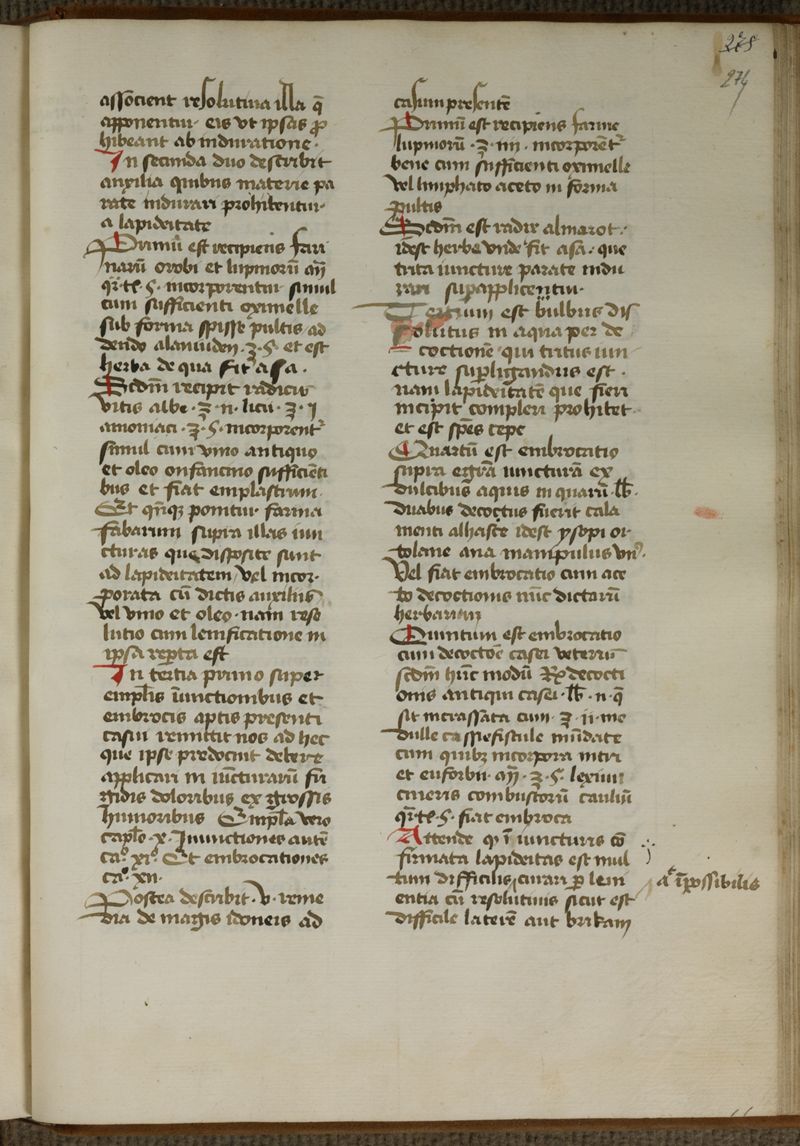 275
274
associent resolutiua illa q̄
apponentur eis vt ipsas ꝓ
hibeant ab induratione ·
In secunda duo describit
auxilia quibus materie pa
rate indurari prohibentur
a lapideitate
Primū est recipiens fari
narū orobi et lupinorū aīi
incorporentur simul
cum sufficienti oximelle
sub forma spisse pultis ad
dendo et est
herba de qua fit asa ·
Scdm̄ recipit radicis
vitis albe · ʒ · ii · licii · ʒ · i
amoniaci · ʒ · ς · incorporent̄
simul cum vino antiquo
et oleo onfancino sufficiēti
bus et fiat emplastrum ·
Et qn̄qꝫ ponitur farina
fabarum supra illas iun
cturas que disposite sunt
ad lapideitatem vel incor·
porata cū dictis auxiliis
vel vino et oleo · nam reso
lutio cum lenificatione in
ipsa reperta est
In tertia primo super
emplīs iunctionibus et
embrocis aptis presenti
casui remittit nos ad hec
que ipse predocuit debere
applicari in iūcturarū fri
gidis doloribus ex grossis
humoribus Empla vero
caplo · x · Inunctiones autē
ca° xi° Et embrocationes
ca° xii ·
Postea describit · v · reme
dia de magis idoneis ad
casum presentē
Primū est recipiens farine
lupinorū · ʒ · iiii · incorporent̄
bene cum sufficienti oximelle
vel limphato aceto in forma
pultis
Scdm̄ est radix almarot ·
idest herbe vnde fit asa · que
trita iuncture parate indu
rari supapplicentur
Tertium est bulbus dis
solutus in aqua per de
coctionē qui tritus iun
cture supligandus est ·
nam lapideitatē que fieri
incipit compleri prohibet
et est spēs cepe
Quartū est embrocatio
supra egrā iuncturā ex
dulcibus aquis in quarū lb̄ ·
duabus decoctus fuerit cala
menti alhasce idest ysopi or
tolane ana manipulus vn̄ ·
Vel fiat embrocatio cum ace
to decoctionis nūc dictarū
herbarum
Quintum est embrocatio
cum decoctōe casei veteris
scdm̄ hūc modū ℞ decocti
onis antiqui casei · lb̄ · ii · q̄
sit incrassata cum · ʒ · ii · me
dulle cassiefistule mūdate
cum quibꝫ incorpora mirr
et euforbii · aīi · ʒ · ς · lexiuii
cineris combustorū cauliū
fiat embroca
Attende q̄ ī iuncturis cō
firmata lapideitas est mul
tum difficilis curari ꝑ leni
entia cū resolutiuis sicut est
difficile laterē aut
a īpossibilis